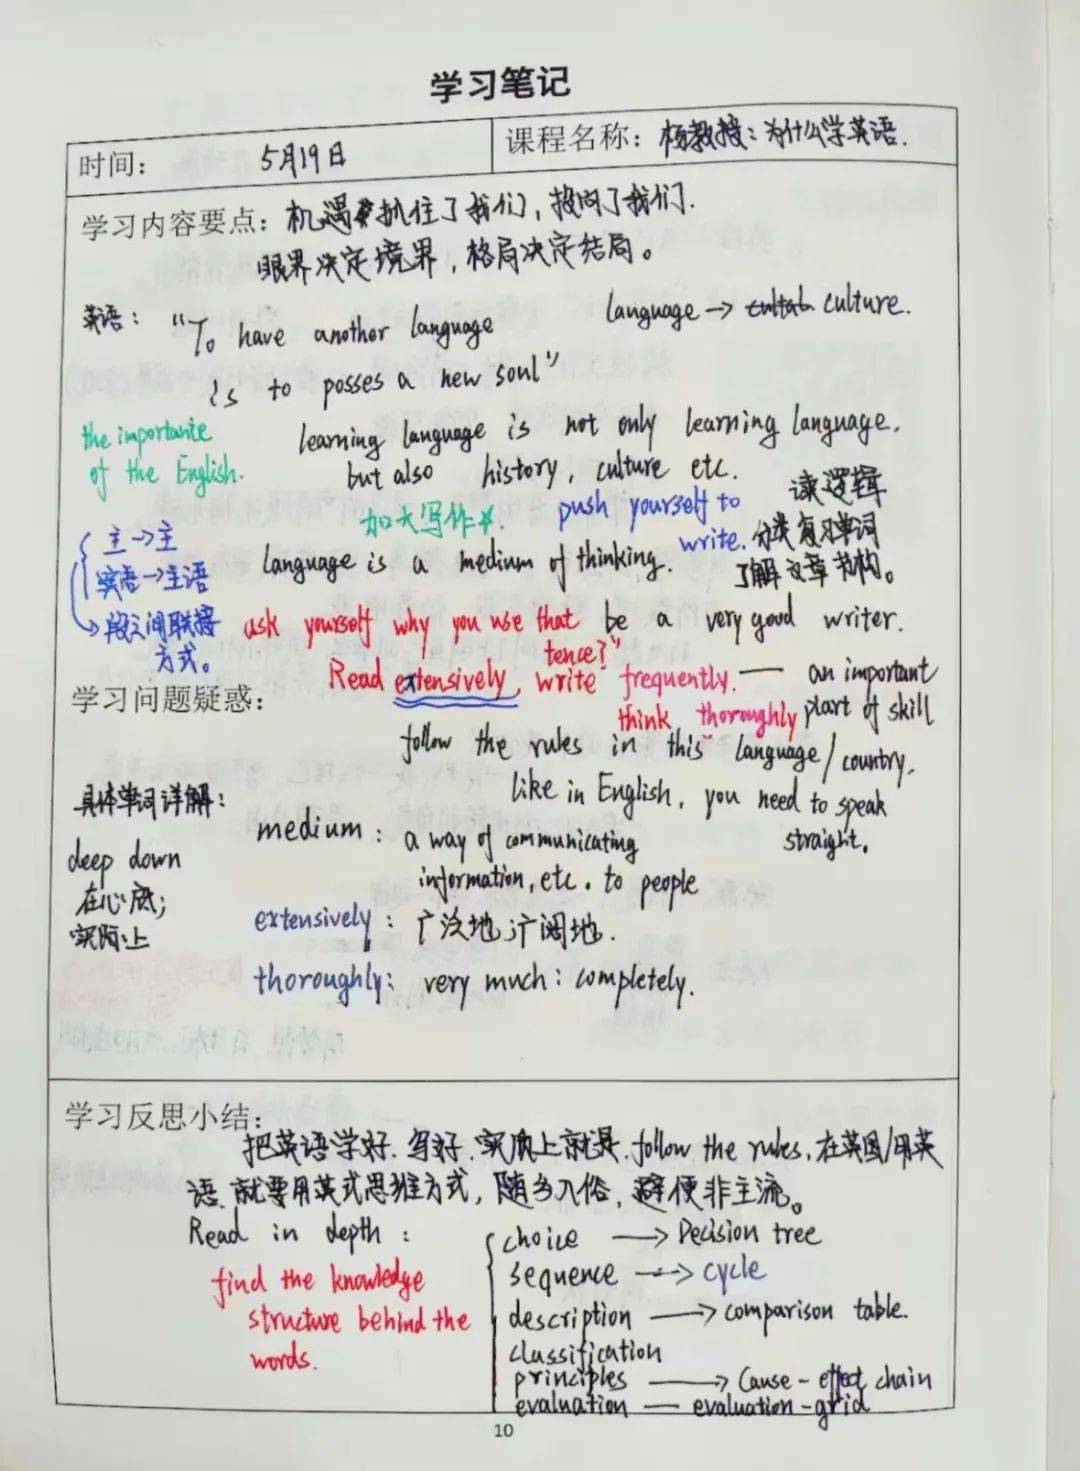 学习笔记
时间： 5月19日
课程名称：杨教授：为什么学英语.
学习内容要点：机遇抓住了我们，投向了我们.
眼界决定境界，格局决定结局。
英语： "To have another language
is to posses a new soul"
language → culture.
the importante
of the English.
learning language is not only learning language,
but also history, culture etc.
加大写作
push yourself to
write.
读逻辑
分类复习单词
了解文章结构。
主→主
宾语→主语
段之间联接
方式。
Language is a medium of thinking.
ask yourself why you use that be a very good writer.
tence?"
Read extensively, write frequently. — an important
think thoroughly part of skill
学习问题疑惑：
follow the rules in this language/country,
like in English, you need to speak
straight.
具体单词详解：
deep down
在心底；
实际上
medium : a way of communicating
information, etc. to people
extensively : 广泛地 广阔地.
thoroughly: very much : completely.
学习反思小结：
把英语学好. 写好. 实质上就是 follow the rules, 在英国/用英
语. 就要用英式思维方式，随乡入俗，便非主流。
Read in depth :
find the knowledge
structure behind the
words.
choice → Decision tree
sequence → cycle
description → comparison table.
classification
principles → Cause - effect chain
evaluation — evaluation - grid
10